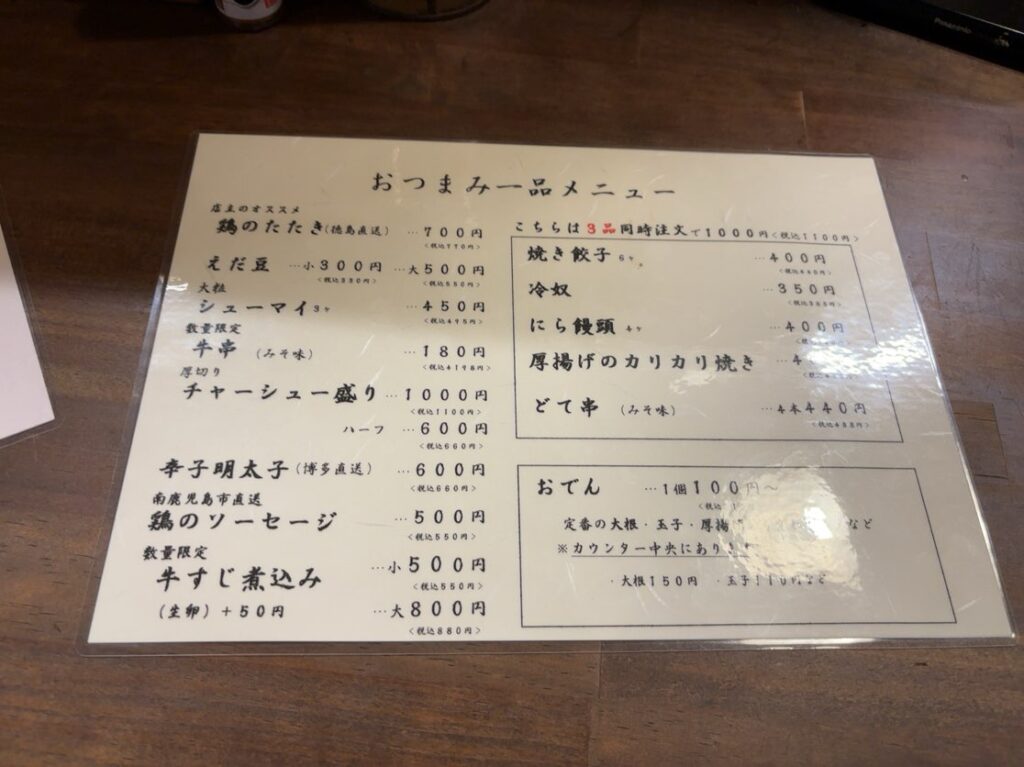 おつまみ一品メニュー
店主のオススメ
鶏のたたき(徳島直送) …700円
<税込770円>
えだ豆 …小300円 …大500円
<税込330円> <税込550円>
大粒
シューマイ3ヶ …450円
<税込495円>
数量限定
牛串 (みそ味) …180円
<税込198円>
厚切り
チャーシュー盛り …1000円
<税込1100円>
ハーフ …600円
<税込660円>
辛子明太子(博多直送) …600円
<税込660円>
南鹿児島市直送
鶏のソーセージ …500円
<税込550円>
数量限定
牛すじ煮込み …小500円
<税込550円>
(生卵)+50円 …大800円
<税込880円>
こちらは3品同時注文で1000円<税込1100円>
焼き餃子 6ヶ …400円
<税込440円>
冷奴 …350円
<税込385円>
にら饅頭 4ヶ …400円
厚揚げのカリカリ焼き …4
どて串 (みそ味) …4本440円
おでん …1個100円~
定番の大根・玉子・厚揚げ など
※カウンター中央にあります
・大根150円 ・玉子110円など
Panasonic